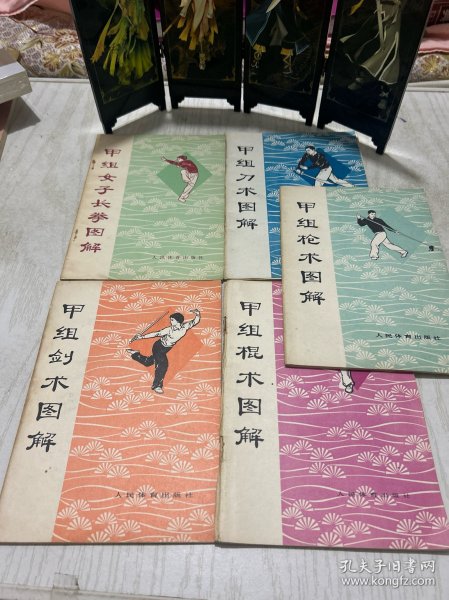 甲组女子长拳图解
人民体育出版社
甲组刀术图解
甲组枪术图解
人民体育出版社
甲组剑术图解
人民体育出版社
甲组棍术图解
人民体育出版社
孔夫子旧书网
www.kongfz.com